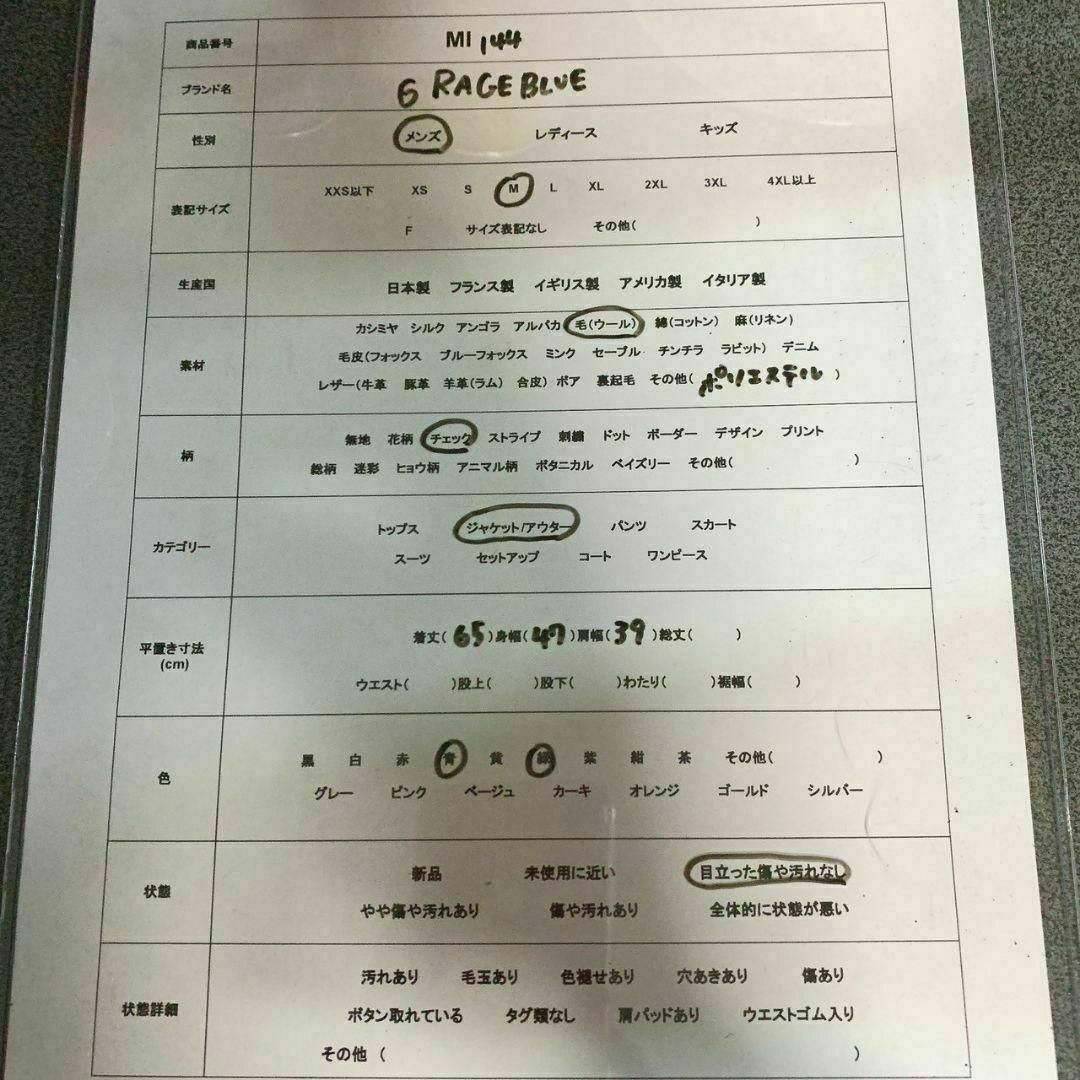 商品番号 MI 144
ブランド名 6 RAGEBLUE
性別 メンズ レディース キッズ
表記サイズ XXS以下 XS S M L XL 2XL 3XL 4XL以上
F サイズ表記なし その他( )
生産国 日本製 フランス製 イギリス製 アメリカ製 イタリア製
素材 カシミヤ シルク アンゴラ アルパカ 毛(ウール) 綿(コットン) 麻(リネン)
毛皮(フォックス ブルーフォックス ミンク セーブル チンチラ ラビット) デニム
レザー(牛革 豚革 羊革(ラム) 合皮) ボア 裏起毛 その他( ポリエステル )
柄 無地 花柄 チェック ストライプ 刺繍 ドット ボーダー デザイン プリント
総柄 迷彩 ヒョウ柄 アニマル柄 ボタニカル ペイズリー その他( )
カテゴリー トップス ジャケット/アウター パンツ スカート
スーツ セットアップ コート ワンピース
平置き寸法
(cm)
着丈( 65 )身幅( 47 )肩幅( 39 )総丈( )
ウエスト( )股上( )股下( )わたり( )裾幅( )
色 黒 白 赤 青 黄 緑 紫 紺 茶 その他( )
グレー ピンク ベージュ カーキ オレンジ ゴールド シルバー
状態 新品 未使用に近い 目立った傷や汚れなし
やや傷や汚れあり 傷や汚れあり 全体的に状態が悪い
状態詳細 汚れあり 毛玉あり 色褪せあり 穴あきあり 傷あり
ボタン取れている タグ類なし 肩パッドあり ウエストゴム入り
その他 ( )